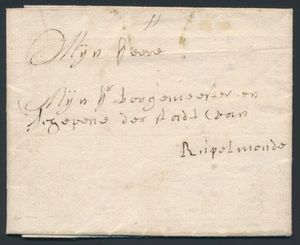 Mijn heere
Mijn hr borgemeester en
Schepene der stadt van
Rupelmonde